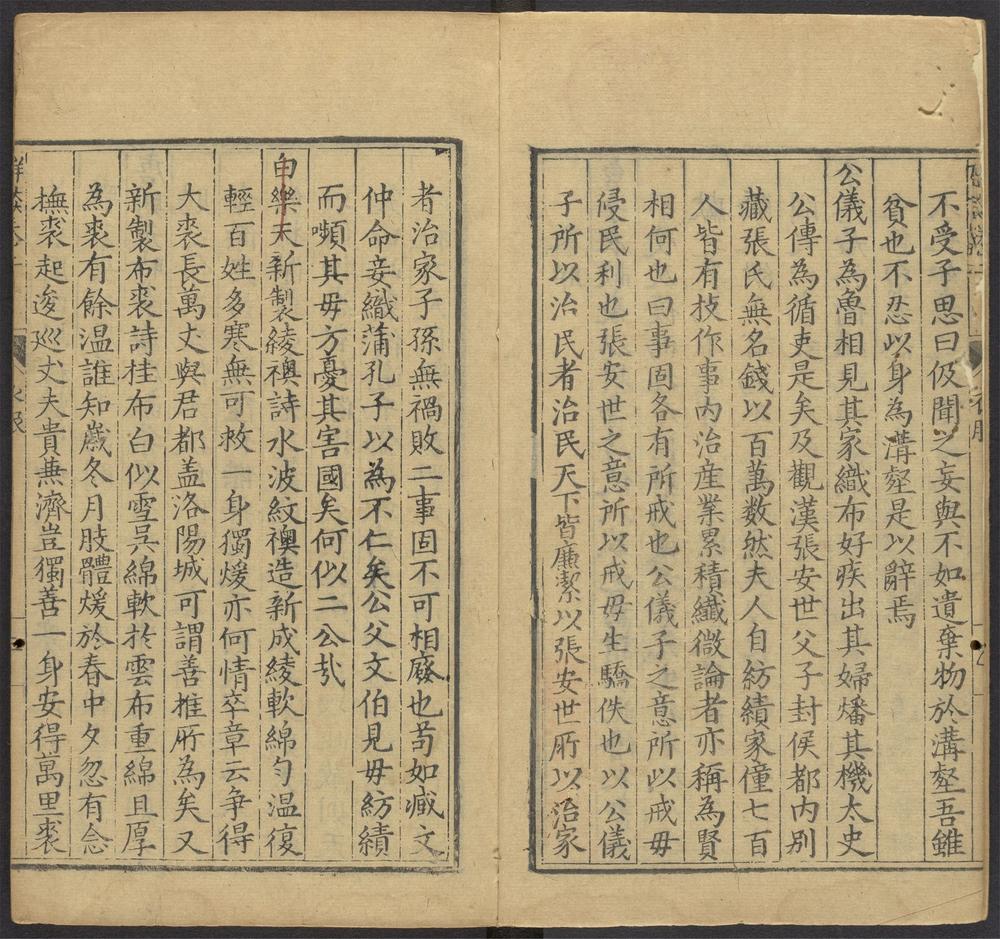 不受子思曰伋聞之妄與不如遺棄物於溝壑吾雖
貧也不忍以身為溝壑是以辭焉
公儀子為魯相見其家織布好疾出其婦燔其機太史
公傳為循吏是矣及觀漢張安世父子封侯都内别
藏張氏無名錢以百萬数然夫人自紡績家僮七百
人皆有技作事内治産業累積纖微論者亦稱為賢
相何也曰事固各有所戒也公儀子之意所以戒毋
侵民利也張安世之意所以戒毋生驕佚也以公儀
子所以治民者治民天下皆廉潔以張安世所以治家
者治家子孫無禍敗二事固不可相廢也苟如臧文
仲命妾織蒲孔子以為不仁矣公父文伯見毋紡績
而嚬其毋方憂其害國矣何似二公㢤
白樂天新製綾襖詩水波紋襖造新成綾軟綿匀温復
輕百姓多寒無可救一身獨煖亦何情卒章云争得
大裘長萬丈與君都盖洛陽城可謂善推所為矣又
新製布裘詩桂布白似雪吳綿軟於雲布重綿且厚
為裘有餘温誰知嵗冬月肢體煖於春中夕忽有念
撫裘起逡巡丈夫貴兼濟豈獨善一身安得萬里裘